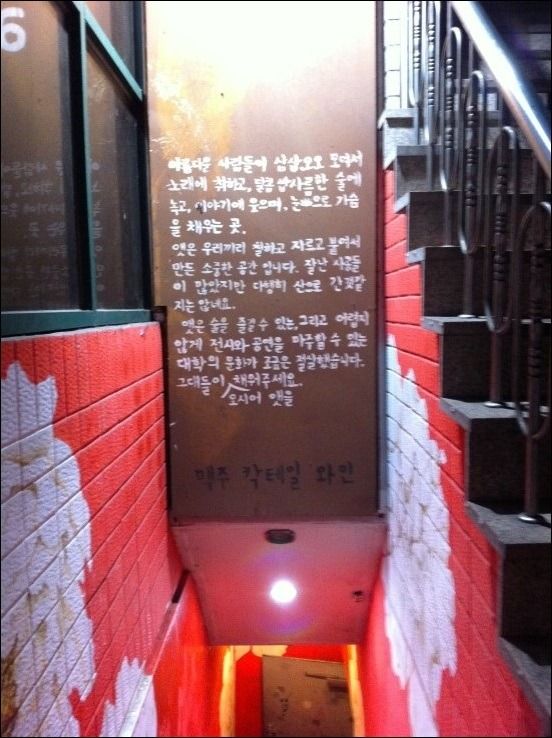 6
아름다운 사람들이 삼삼오오 모여서
노래에 취하고, 달콤 쌉싸름한 술에
녹고, 이야기에 웃으며, 눈빛으로 가슴
을 채우는 곳.
앳은 우리끼리 칠하고 자르고 붙여서
만든 소중한 공간 입니다. 잘난 사공들
이 많았지만 다행히 산으로 간것같
지는 않네요.
앳은 술을 즐길수 있는, 그리고 어렵지
않게 전시와 공연을 마주할 수 있는
대학의 문화가 조금은 절실했습니다.
그대들이 채워주세요.
오시어 앳을
맥주 칵테일 와인